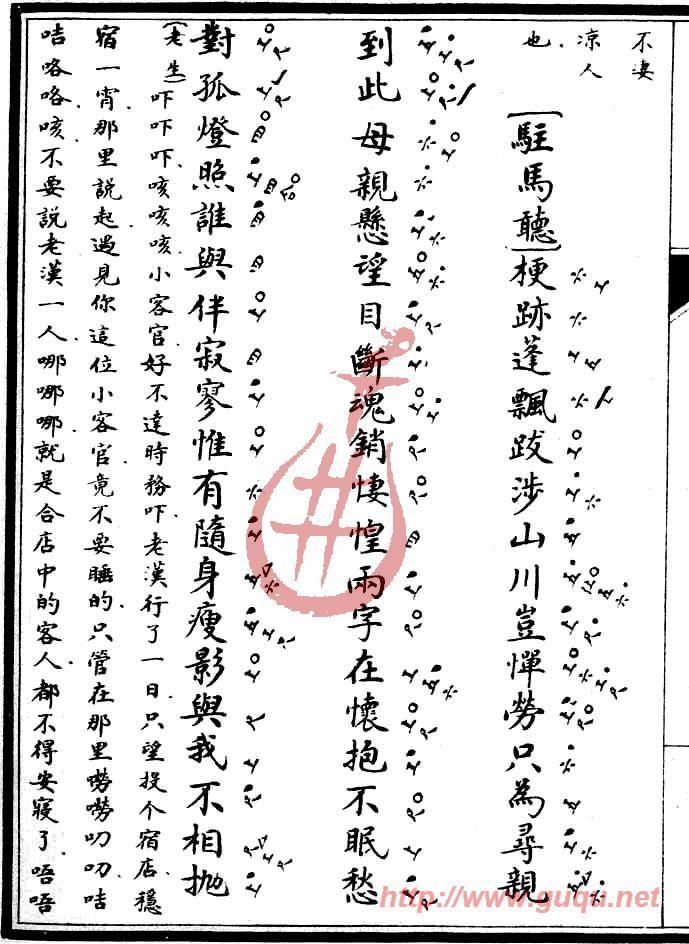 不凄
凉人
也
[駐馬聽]梗跡蓬飄跋涉山川豈憚勞只為尋親
到此母親懸望目斷魂銷悽惶兩字在懷抱不眠愁
對孤燈照誰與伴寂寥惟有隨身瘦影與我不相抛
(老生)吓吓吓咳咳咳小客官好不達時務吓老漢行了一日只望投个宿店穩
宿一宵那里說起遇見你這位小客官竟不要睡的只管在那里嘮嘮叨叨咭
咭咯咯咳不要説老漢一人哪哪哪就是合店中的客人都不得安寢了唔唔
http://www.guqu.net